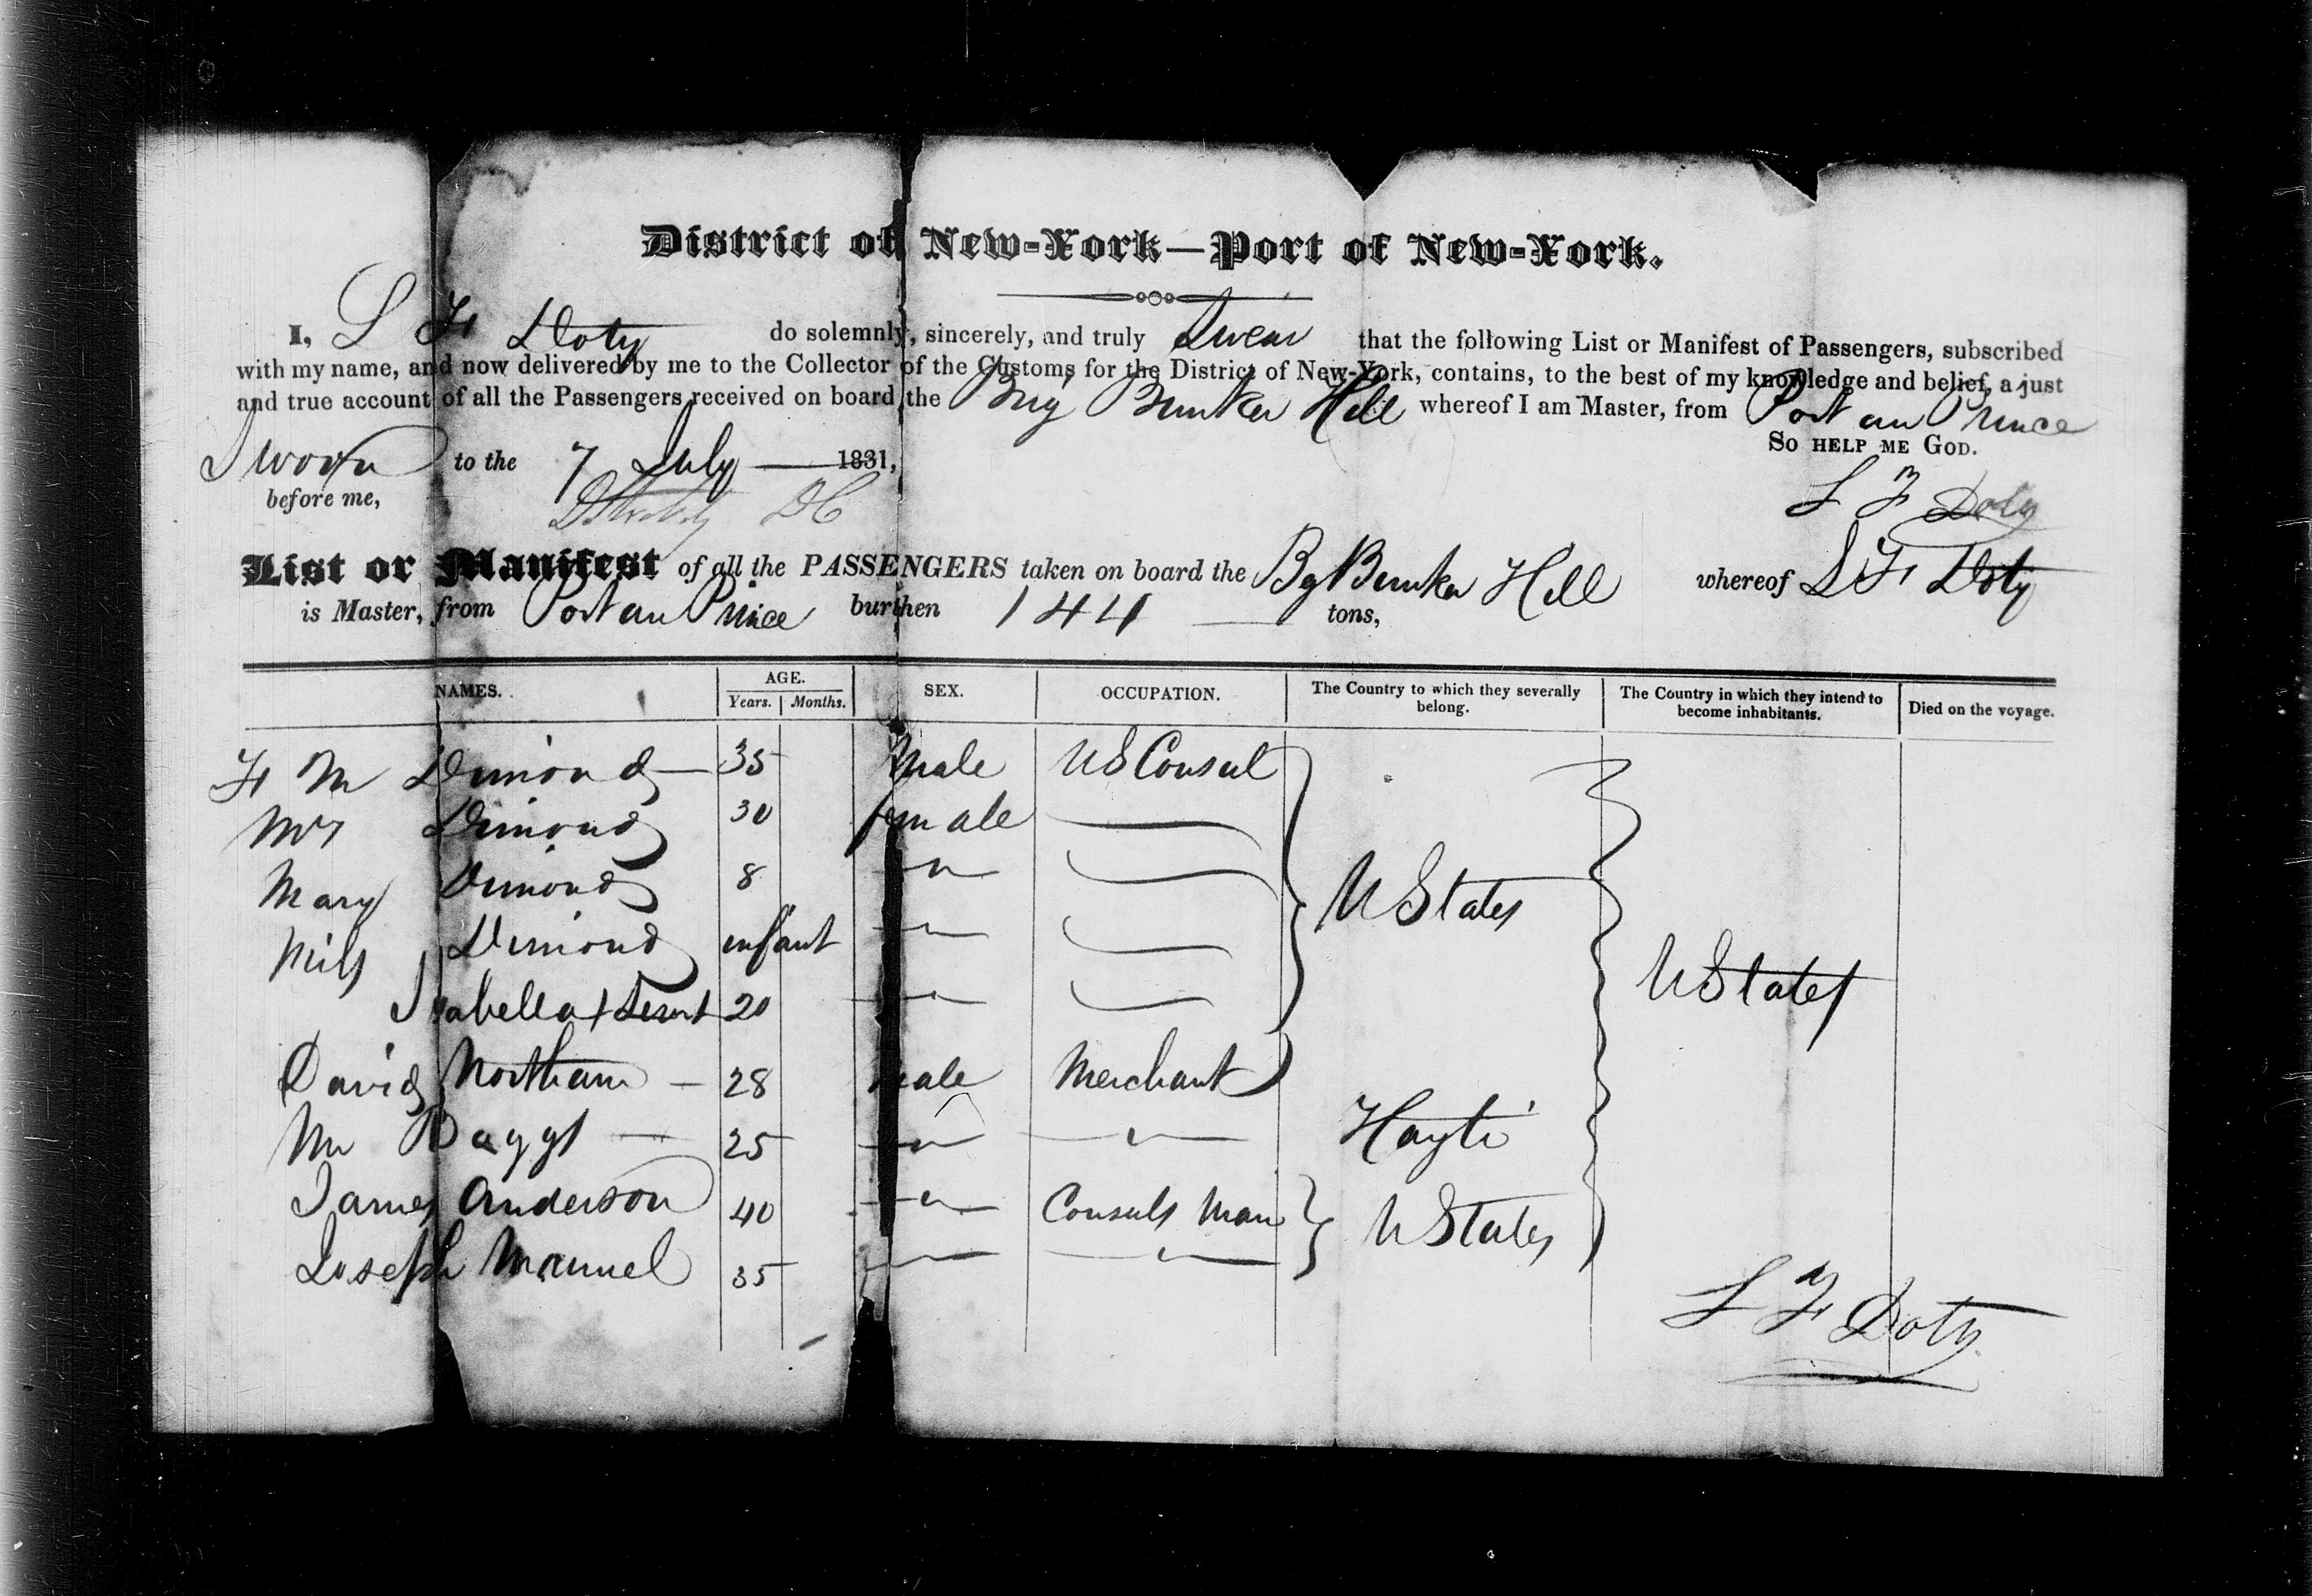 District of New-York—Port of New-York.
I, L F Doty do solemnly, sincerely, and truly Swear that the following List or Manifest of Passengers, subscribed
with my name, and now delivered by me to the Collector of the Customs for the District of New-York, contains, to the best of my knowledge and belief, a just
and true account of all the Passengers received on board the Brig Bunker Hill whereof I am Master, from Port au Prince
So help me God.
Sworn to the 7 July 1831,
before me,
D C
L F Doty
List or Manifest of all the PASSENGERS taken on board the Bg Bunker Hill whereof L F Doty
is Master, from Port au Prince burthen 144 tons,
NAMES. AGE. SEX. OCCUPATION. The Country to which they severally belong. The Country in which they intend to become inhabitants. Died on the voyage.
Years. Months.
F M Dimond 35 Male US Consul
Mrs Dimond 30 female
Mary Dimond 8 "
Miss Dimond infant "
U States
Isabella Servt 20 "
U States
David Northam 28 male Merchant
Mr Baggs 25 " " Hayti
James Anderson 40 " Consuls Man U States
Joseph Manuel 35 " "
L F Doty